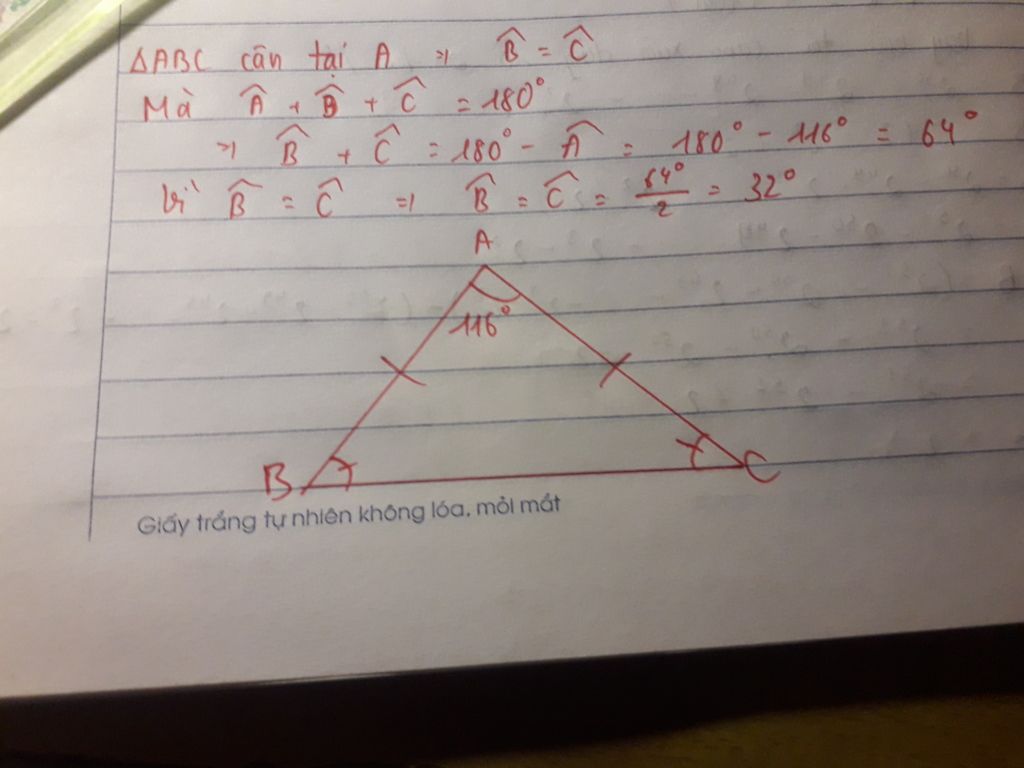 ΔABC cân tại A => B̂ = Ĉ
Mà Â + B̂ + Ĉ = 180°
=> B̂ + Ĉ = 180° - Â = 180° - 116° = 64°
Vì B̂ = Ĉ => B̂ = Ĉ = 64°/2 = 32°
A
116°
B C
Giấy trắng tự nhiên không lóa, mỏi mắt